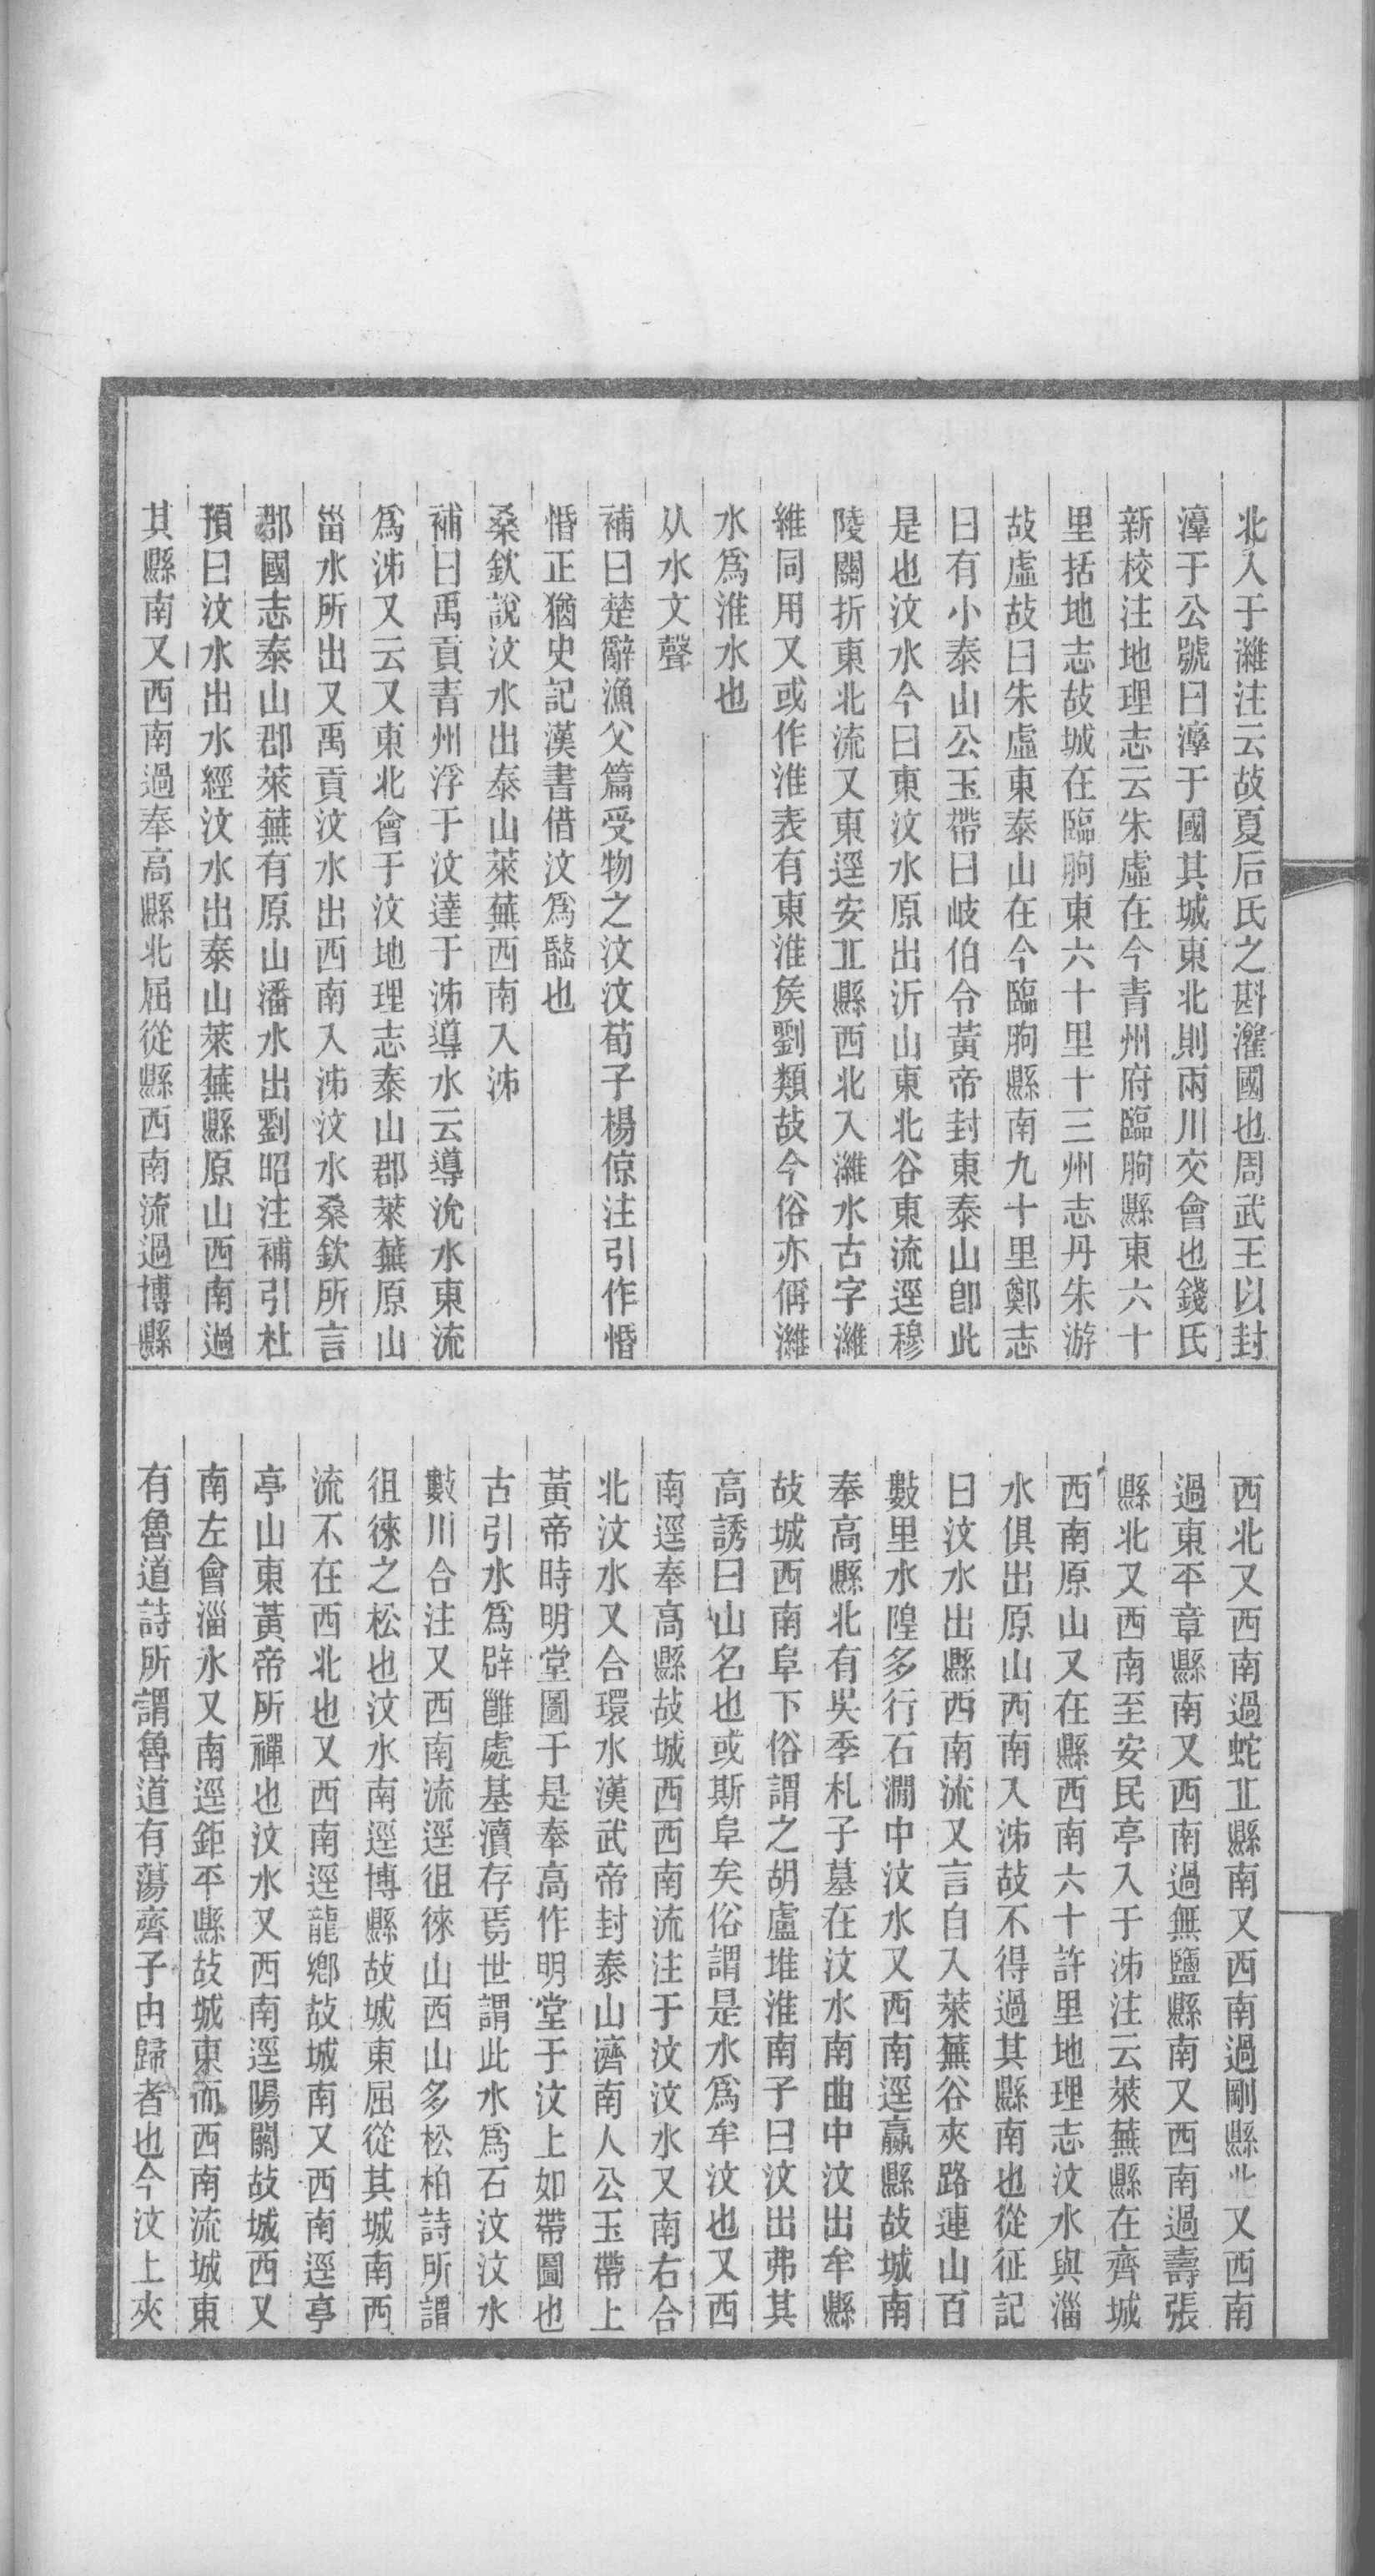 北入于濰注云故夏后氏之斟灌國也周武王以封
淳于公號曰淳于國其城東北則兩川交會也錢氏
新校注地理志云朱虛在今青州府臨朐縣東六十
里括地志故城在臨朐東六十里十三州志丹朱游
故虛故曰朱虛東泰山在今臨朐縣南九十里鄭志
曰有小泰山公玉帶曰岐伯令黃帝封東泰山卽此
是也汶水今曰東汶水原出沂山東北谷東流逕穆
陵關折東北流又東逕安丠縣西北入濰水古字濰
維同用又或作淮表有東淮矦劉類故今俗亦偁濰
水爲淮水也
从水文聲
補曰楚辭漁父篇受物之汶汶荀子楊倞注引作惛
惛正猶史記漢書借汶爲䛑也
桑欽說汶水出泰山萊蕪西南入泲
補曰禹貢青州浮于汶達于泲導水云導沇水東流
爲泲又云又東北會于汶地理志泰山郡萊蕪原山
甾水所出又禹貢汶水出西南入泲汶水桑欽所言
郡國志泰山郡萊蕪有原山潘水出劉昭注補引杜
預曰汶水出水經汶水出泰山萊蕪縣原山西南過
其縣南又西南過奉高縣北屈從縣西南流過博縣
西北又西南過蛇丠縣南又西南過剛縣北又西南
過東平章縣南又西南過無鹽縣南又西南過壽張
縣北又西南至安民亭入于泲注云萊蕪縣在齊城
西南原山又在縣西南六十許里地理志汶水與淄
水俱出原山西南入泲故不得過其縣南也從征記
曰汶水出縣西南流又言自入萊蕪谷夾路連山百
數里水隍多行石澗中汶水又西南逕嬴縣故城南
奉高縣北有吳季札子墓在汶水南曲中汶出牟縣
故城西南阜下俗謂之胡盧堆淮南子曰汶出弗其
高誘曰山名也或斯阜矣俗謂是水爲牟汶也又西
南逕奉高縣故城西西南流注于汶汶水又南右合
北汶水又合環水漢武帝封泰山濟南人公玉帶上
黃帝時明堂圖于是奉高作明堂于汶上如帶圖也
古引水爲辟雝處基瀆存焉世謂此水爲石汶汶水
數川合注又西南流逕徂徠山西山多松柏詩所謂
徂徠之松也汶水南逕博縣故城東屈從其城南西
流不在西北也又西南逕龍鄉故城南又西南逕亭
亭山東黃帝所禪也汶水又西南逕陽關故城西又
南左會淄水又南逕鉅平縣故城東而西南流城東
有魯道詩所謂魯道有蕩齊子由歸者也今汶上夾